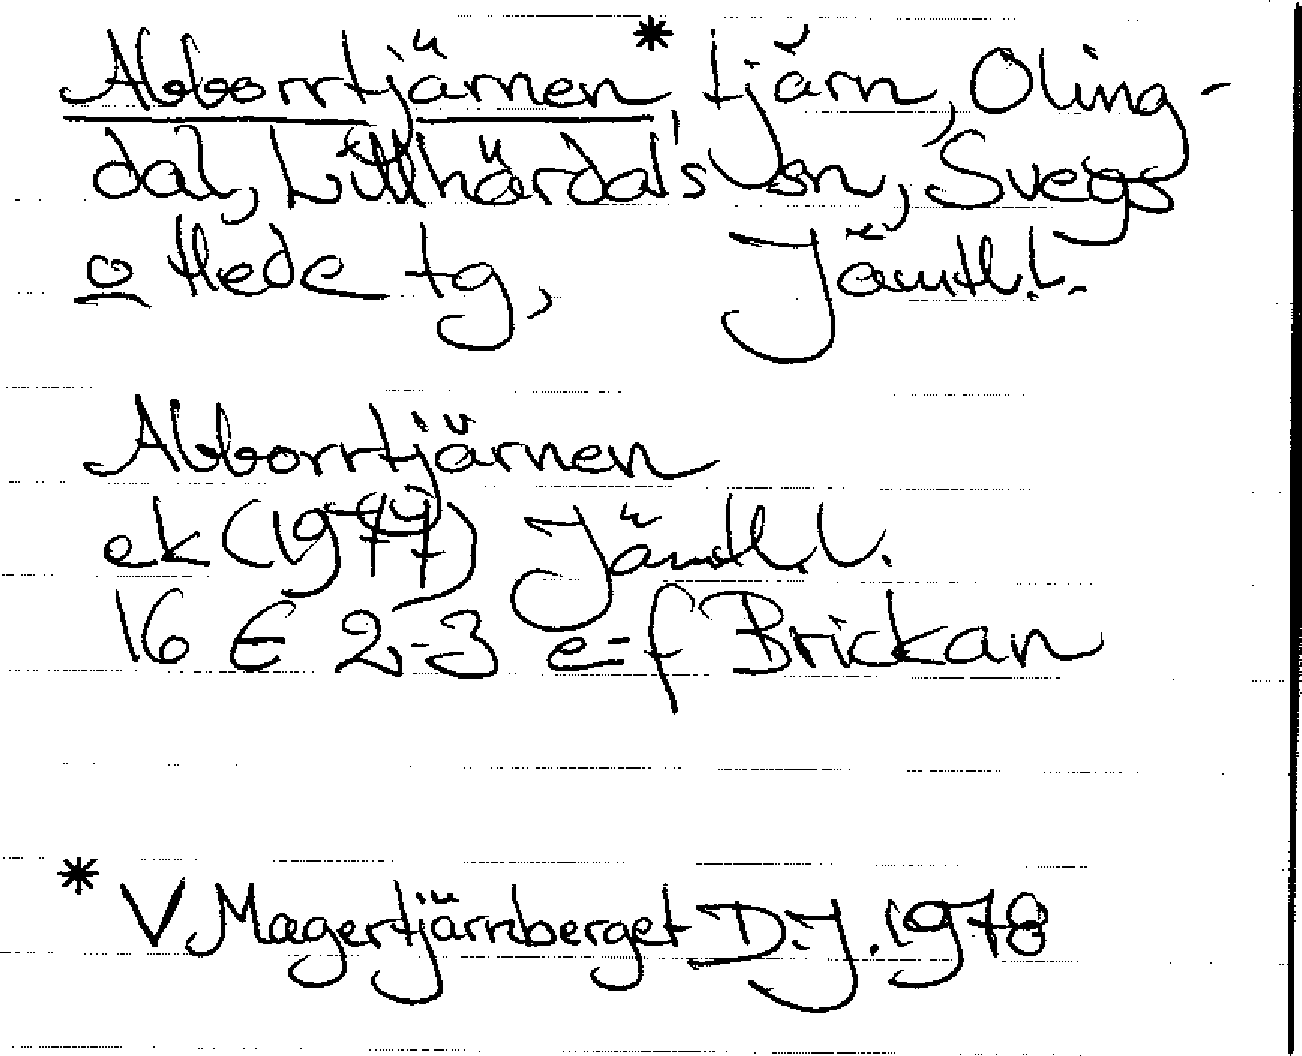 Abborrtjärnen*, tjärn, Oling-
dal, Lillhärdals sn, Svegs
o Hede tg, Jämtl.l.
Abborrtjärnen
ek (1977) Jämtl.l.
16 E 2-3 e-f Brickan
* V Magertjärnberget D.J. 1978